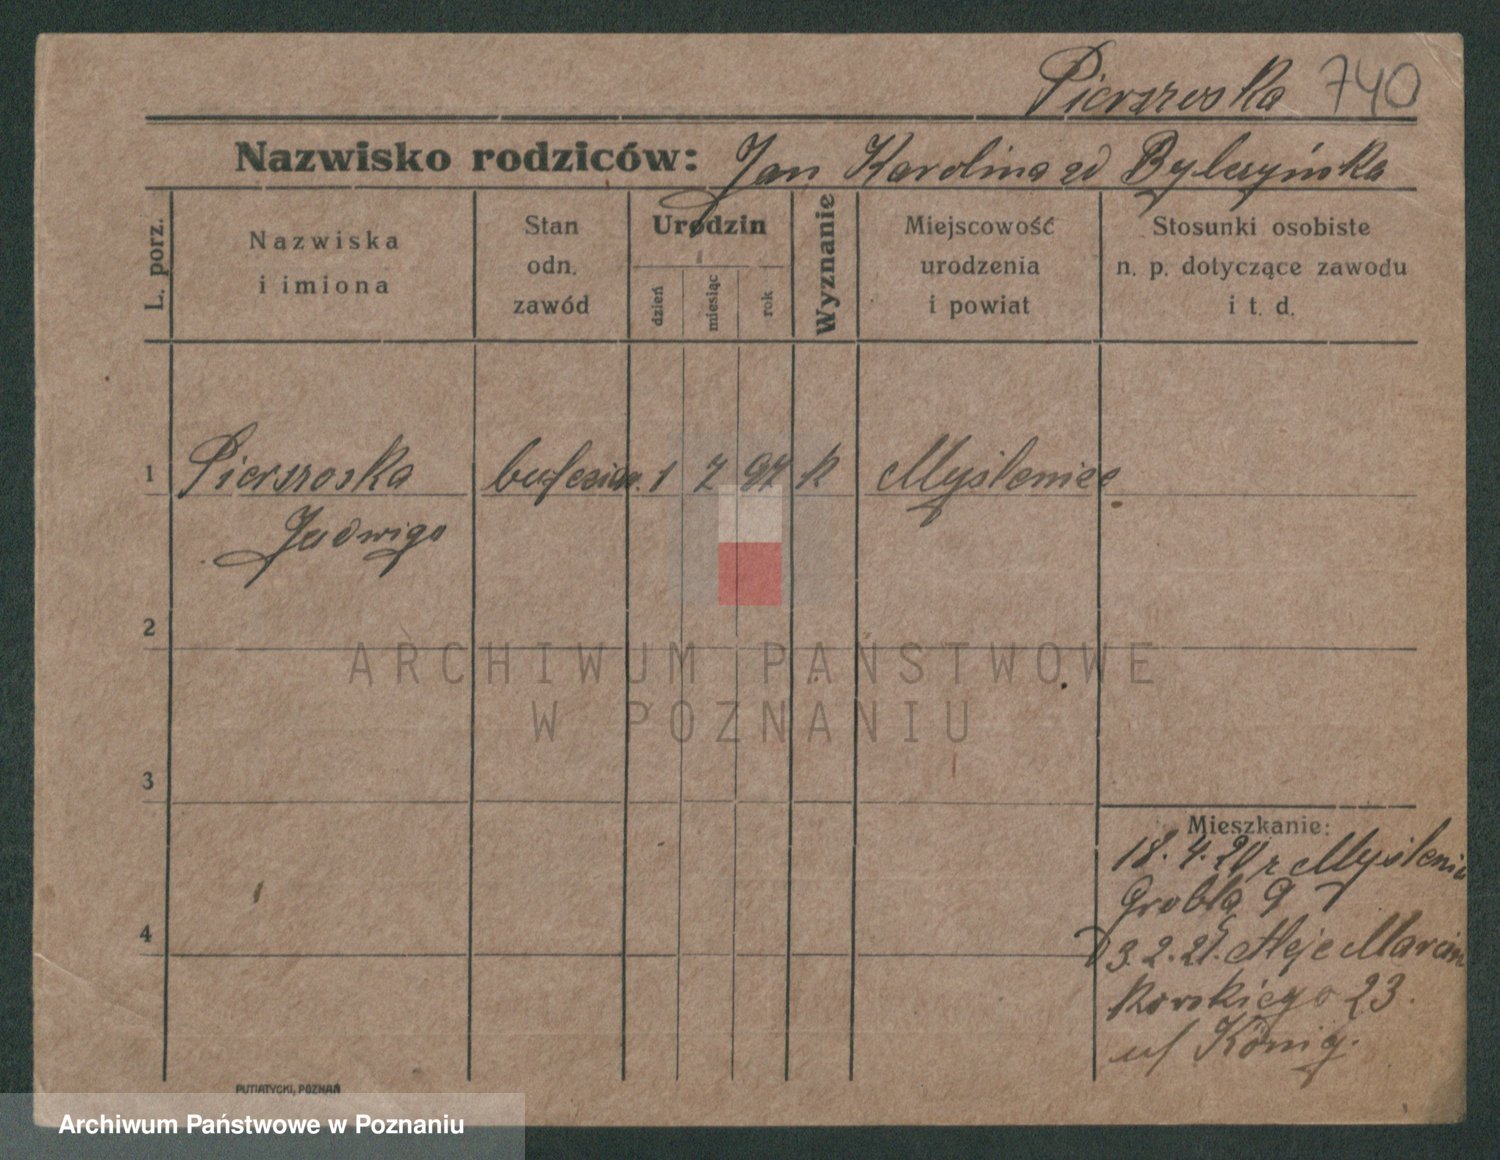 Pierszoska 740
Nazwisko rodziców: Jan Karolina zd
L. porz.
Nazwiska
i imiona
Stan
odn.
zawód
Urodzin
dzień
miesiąc
rok
Wyznanie
Miejscowość
urodzenia
i powiat
Stosunki osobiste
n. p. dotyczące zawodu
i t. d.
1 Pierszoska 1 7 97 k Myślenice
Jadwiga
2
ARCHIWUM PAŃSTWOWE
W POZNANIU
3
Mieszkanie:
18. 4. 20 z
Grobla 9
4
3. 2. 21. Aleje Marcin
kowskiego 23.
u/ König.
PUTIATYCKI, POZNAŃ
Archiwum Państwowe w Poznaniu